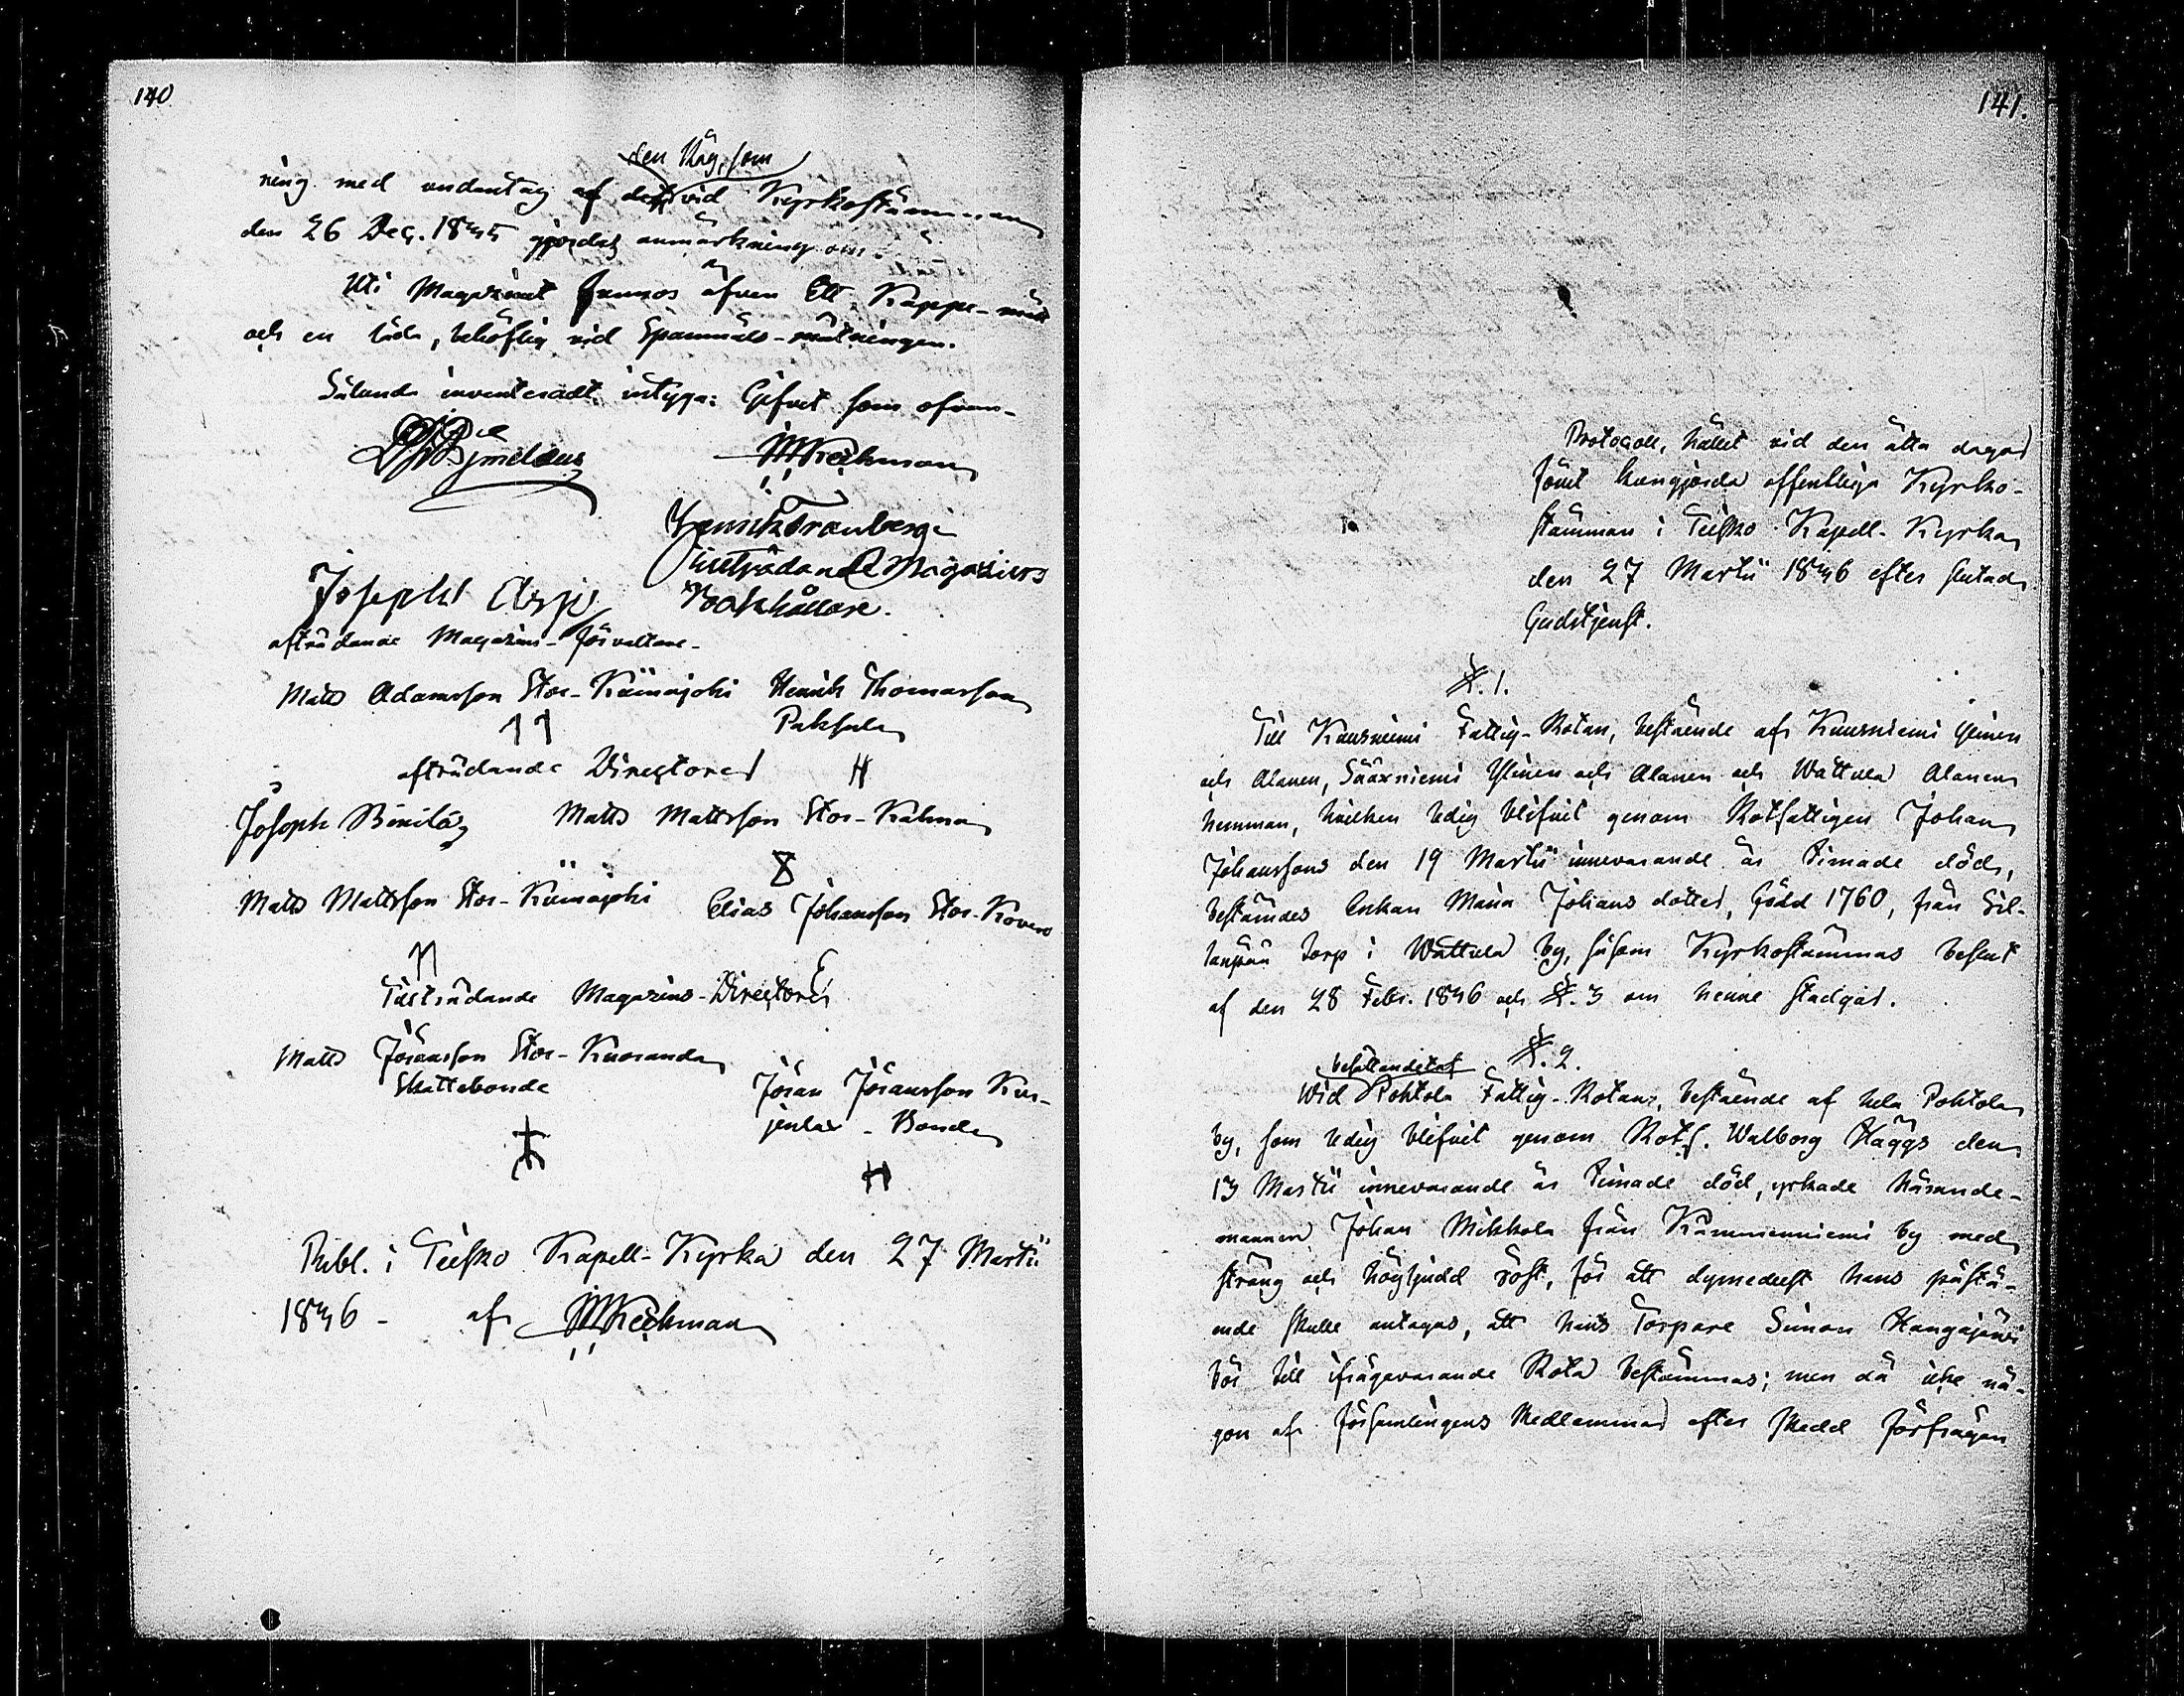 140
den Väg, som
ning med undantag af det vid Kyrkostämman
den 26 Dec. 1845 gjordes anmärkning om
Uti Magazinet funnos äfven Ett Kappe-mått
och en låda, behöflig vid Spannmåls-mätningen.
Sålunda inventeradt, intyga: Gifvet som ofvan-
Henrik Tranberg
tilträdande Magazins
Bokhållare.
Joseph
afträdande Magazins-förvaltare-
Matts Adamsson Stor-Kämäjoki Henrik Thomasson
Paksula
afträdande Directorer
Joseph Matts Mattsson Stor-Kalma
Matts Mattsson Stor-Kämäjoki Elias Johansson Stor-Kovero
Tillträdande Magazins-Directorer
Matts Jöransson Stor-Kuoranda
Skattebonde
Jöran Jöransson Kur-
jenlax - Bonde
Publ. i Teisko Kapell-Kyrka den 27 Martii
1846 - af
141.
Protocoll, hållet vid den åtta dagar
förut kungjorda offentliga Kyrko-
stämman i Teisko Kapell-Kyrka
den 27 Martii 1846 efter slutad
Gudstjenst.
§. 1.
Till Kausniemi Fattig-Rotan, bestående af Kausniemi Ylinen
och Alanen, Sääxniemi Ylinen och Alanen och Wattula Alanen
hemman, hvilken ledig blifvit genom Rotfattigen Johan
Johanssons den 19 Martii innevarande år timade död,
bestämdes Enkan Maria Johans dotter, född 1760, från Sil-
lanpää torp i Wattula by, såsom Kyrkostämmas beslut
af den 28 Febr. 1846 och §. 3 om henne stadgar.
§. 2.
besättandet af
Wid Pohtola Fattig-Rotan, bestående af hela Pohtola
by, som ledig blifvit genom Rotf. Walborg Häggs den
13 Martii innevarande år timade död, yrkade Härands-
mannen Johan Mikkola från Kämmenniemi by med
sträng och högljudd röst, för att dymedelst hans påstå-
ende skulle antagas, att hans Torpare Simon Hangasjärvi
bör till ifrågavarande Rota bestämmas; men då icke nå-
gon af Församlingens Medlemmar efter skedd förfrågan